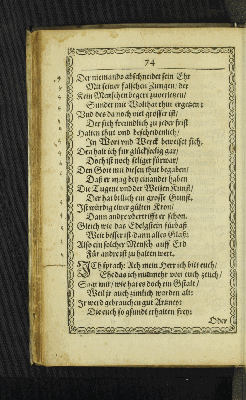 74
Der niemands abschneidet sein Ehr
Mit seiner falschen Zungen/ der
Kein Menschen begert zuverletzen/
Sunder mit Wolthat thut ergetzen;
Und des da noch viel grösser ist/
Der sich freundlich zu jeder frist
Halten thut und bescheidenlich/
In Wort und Werck beweiset sich.
Den halt ich für glückselig gar/
Doch ist noch seliger fürwar/
Den Gott mit diesen thut begaben/
Daß er mag bey einander haben
Die Tugent und der Weißen Kunst/
Der hat billich ein grosse Gunst.
Ist würdig einer gülten Kron/
Dann andre ubertrifft er schon.
Gleich wie das Edelgstein fürbaß
Weit besser ist dann alles Glaß:
Also ein solcher Mensch auff Erd
Für andre ist zu halten wert.
ICh sprach: Ach mein Herr ich bitt euch/
Ehe das ich nunmehr von euch zeuch/
Sagt mir/ wie hat es doch ein Gstalt/
Weil jr auch zimlich worden alt:
Ir werd gebrauchen gut Artzney:
Die euch so gsund erhalten frey:
Oder